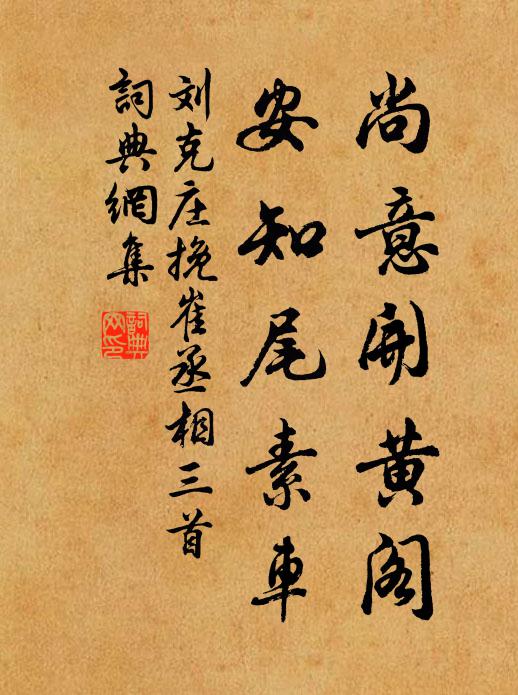 尚意開黄阁
安知尾素車
刘克庄挽崔丞相三首
詞典網集
詞典网印